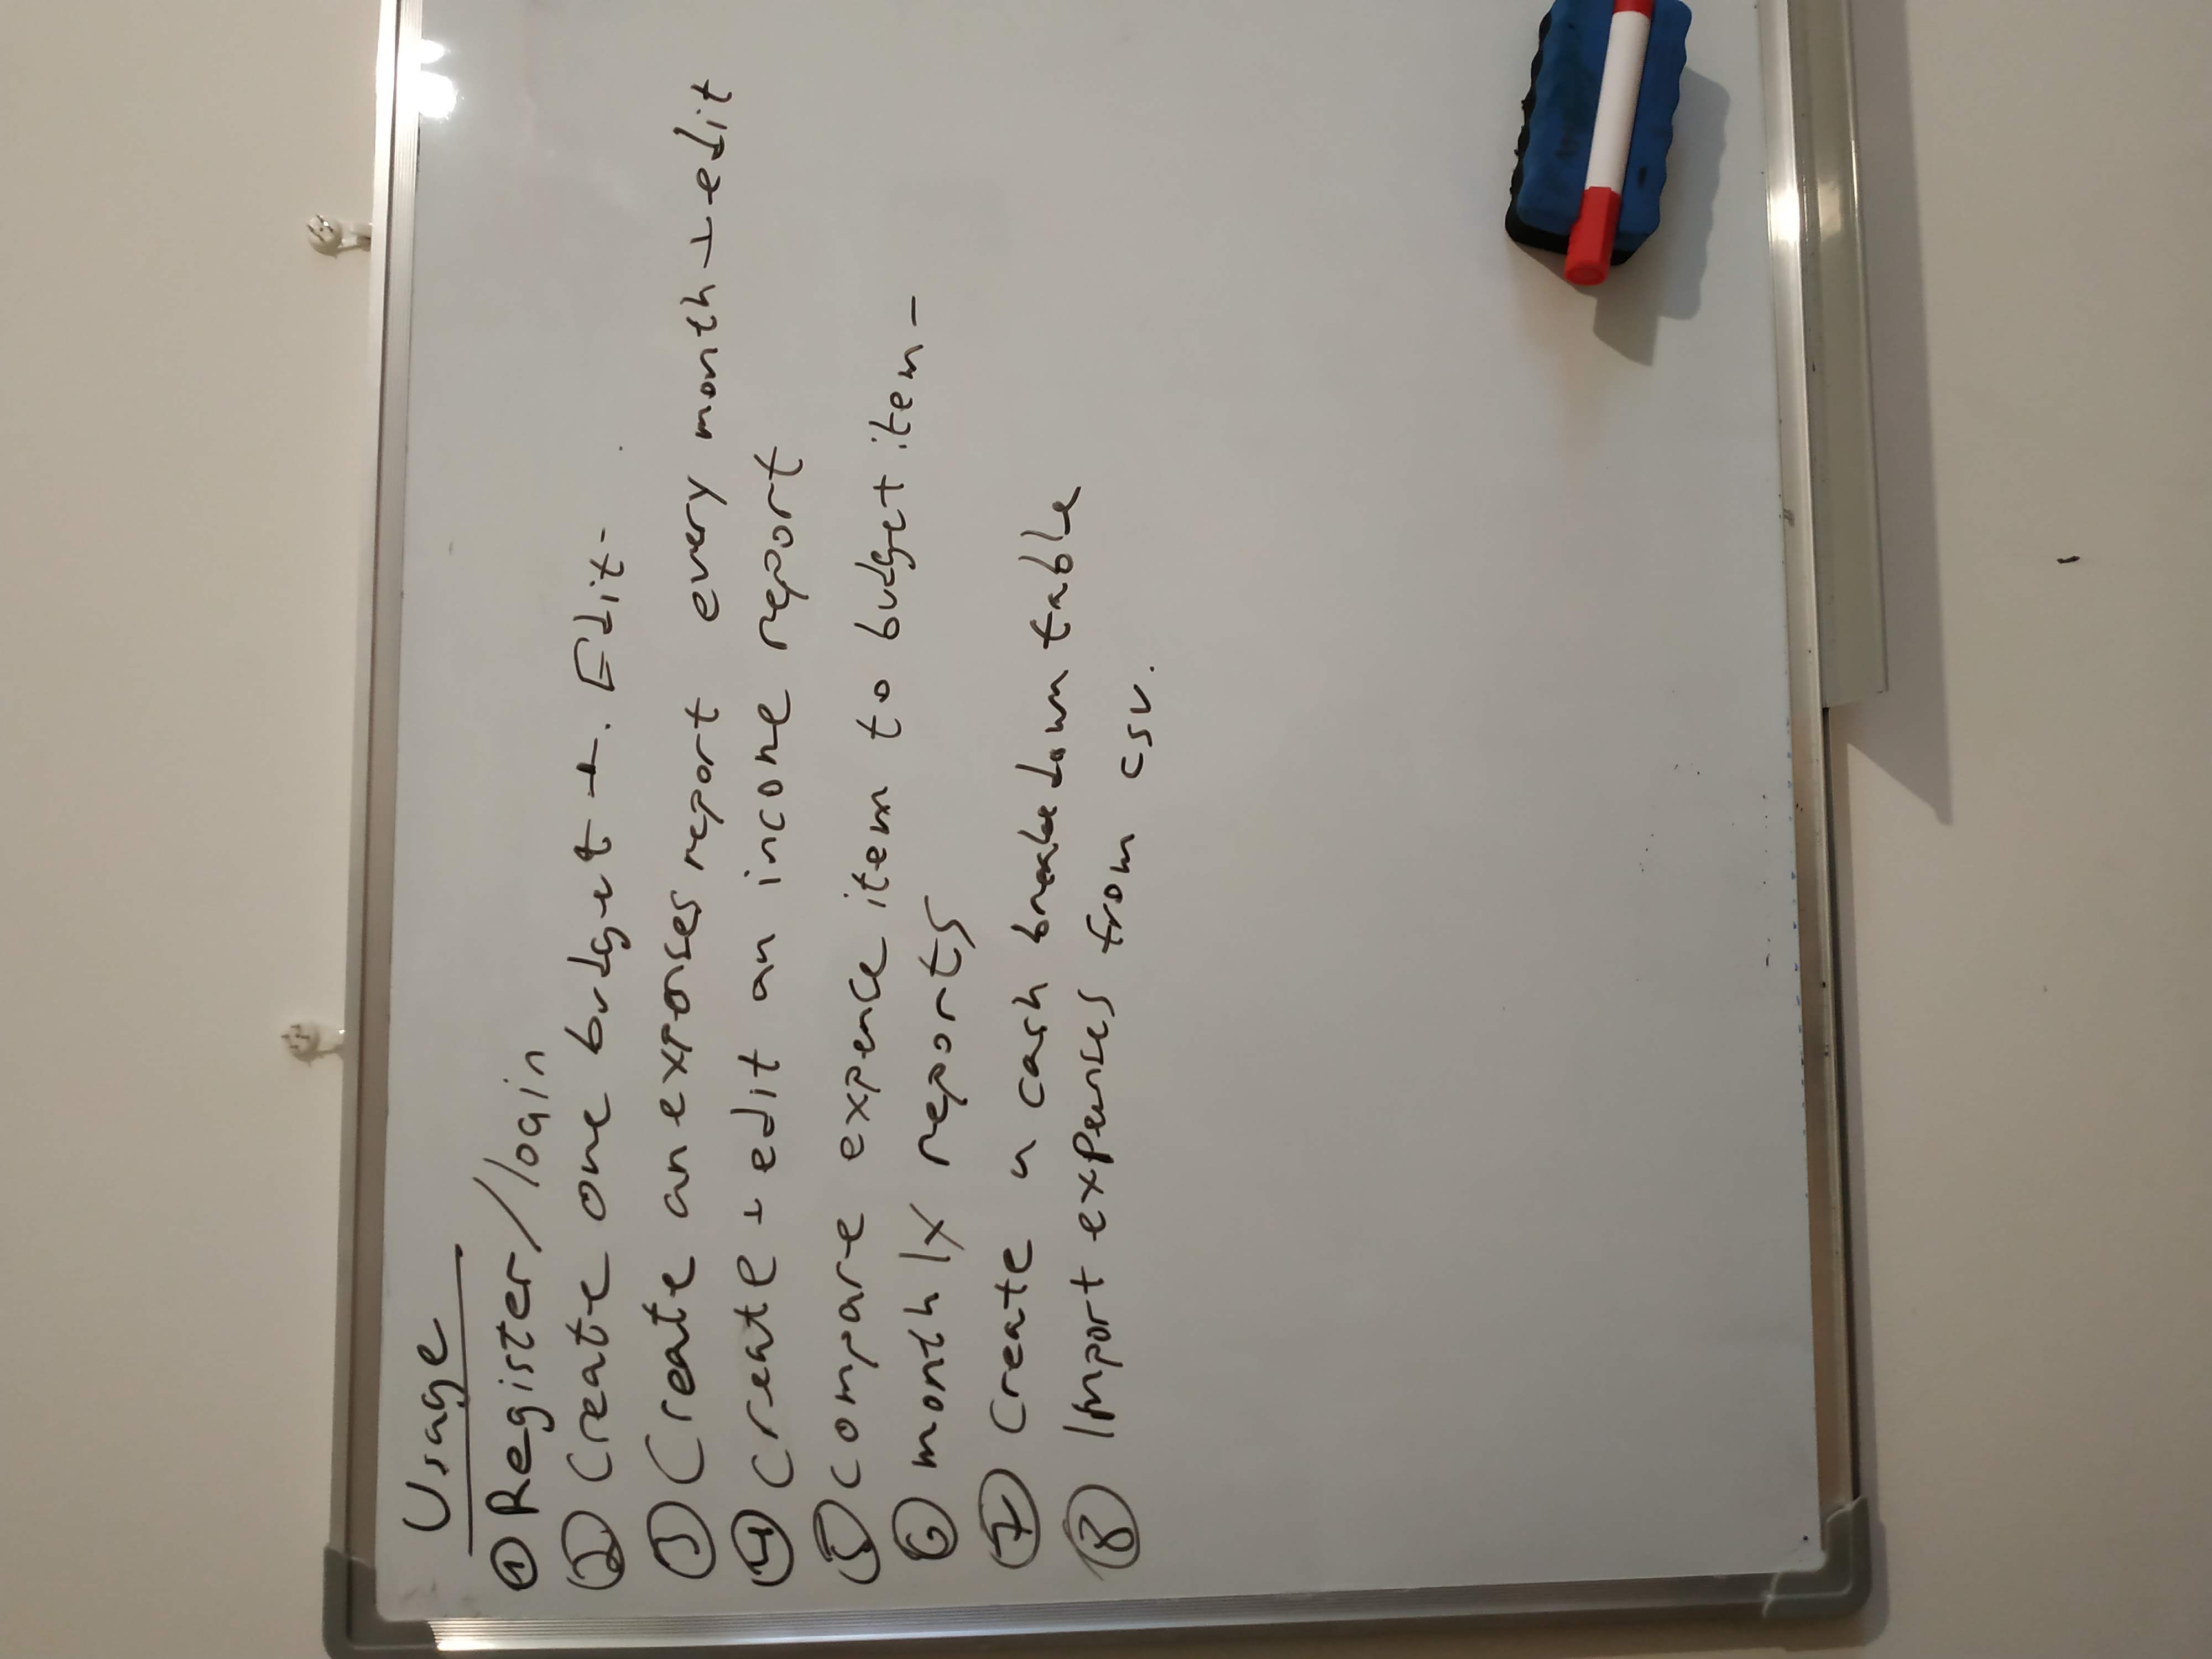 Usage
① Register/login
② Create one budget +. Edit-
③ Create an expenses report every month + edit
④ create + edit an income report
⑤ compare expence item to budget item -
⑥ monthly reports
⑦ Create a cash breakedown table
⑧ Import expenses from csv.